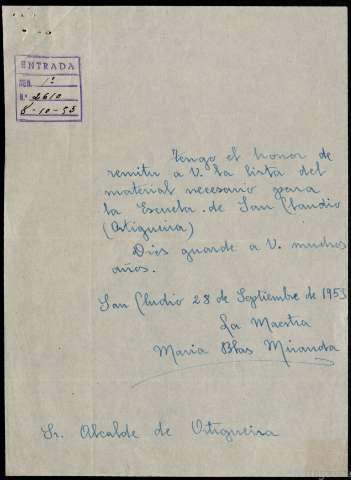 ENTRADA
NEG. 1º
N.º 2610
8-10-53
Tengo el honor de
remitir a V. la lista del
material necesario para
la Escuela de San Claudio
(Ortigueira)
Dios guarde a V. muchos
años.
San Cludio 28 de Septiembre de 1953
La Maestra
Maria Blas Miranda
Sr. Alcalde de Ortigueira